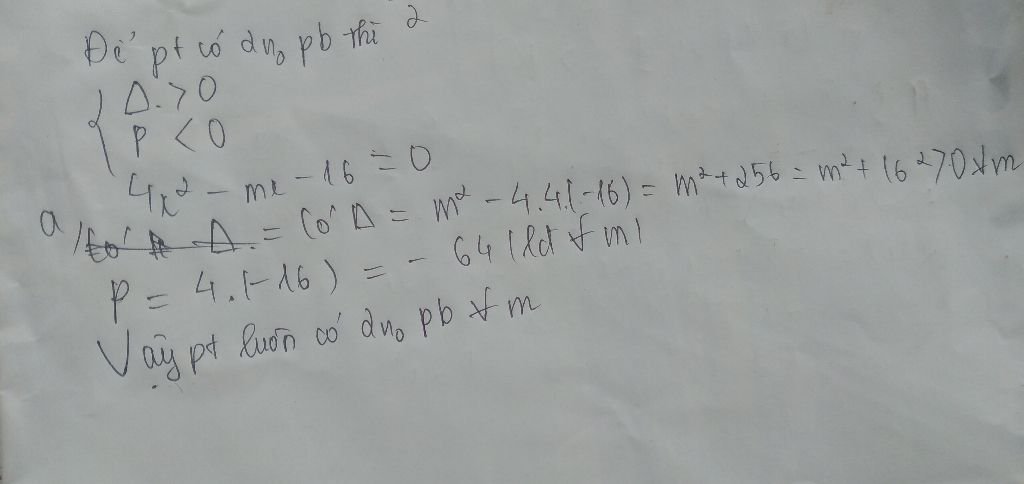 Để pt có 2n₀ pb thì 2
Δ. > 0
P < 0
4x² - mx - 16 = 0
a/ Có Δ = Có Δ = m² - 4.4.(-16) = m² + 256 = m² + 16² > 0 ∀m
P = 4.(-16) = - 64 (lđ ∀ m)
Vậy pt luôn có 2n₀ pb ∀ m